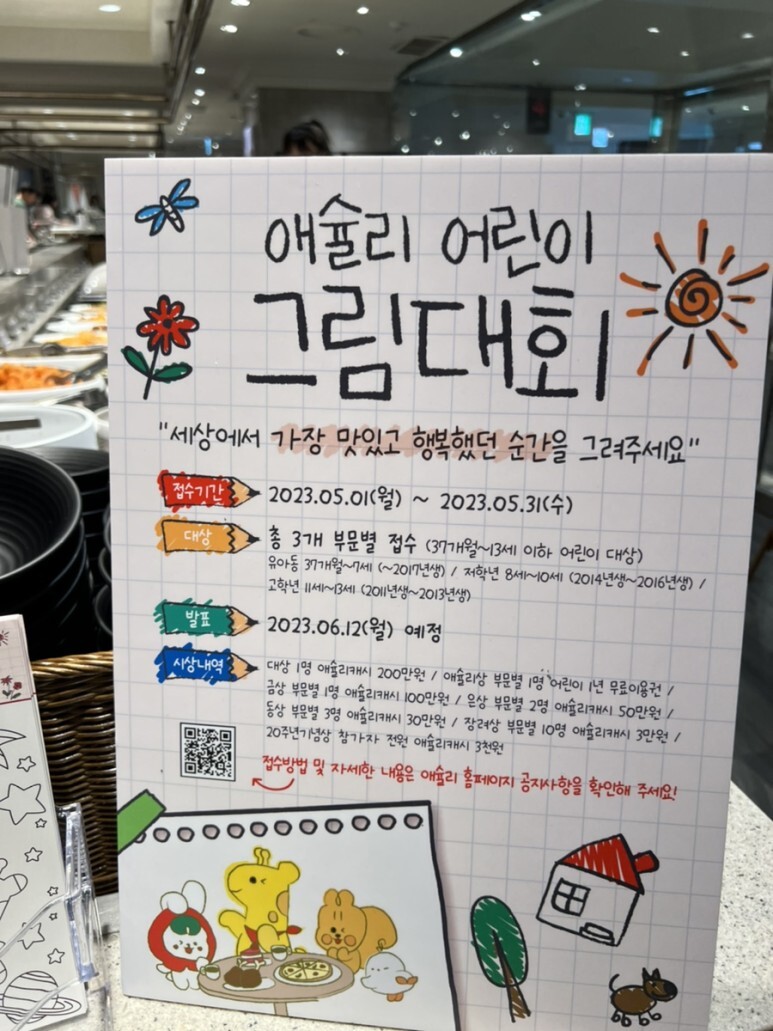 애슐리 어린이
그림대회
"세상에서 가장 맛있고 행복했던 순간을 그려주세요"
접수기간 2023.05.01(월) ~ 2023.05.31(수)
대상 총 3개 부문별 접수 (37개월~13세 이하 어린이 대상)
유아동 37개월~7세 (~2017년생) / 저학년 8세~10세 (2014년생~2016년생) /
고학년 11세~13세 (2011년생~2013년생)
발표 2023.06.12(월) 예정
시상내역 대상 1명 애슐리캐시 200만원 / 애슐리상 부문별 1명 "어린이 1년 무료이용권 /
금상 부문별 1명 애슐리캐시 100만원 / 은상 부문별 2명 애슐리캐시 50만원 /
동상 부문별 3명 애슐리캐시 30만원 / 장려상 부문별 10명 애슐리캐시 3만원 /
20주년기념상 참가자 전원 애슐리캐시 3천원
접수방법 및 자세한 내용은 애슐리 홈페이지 공지사항을 확인해 주세요!